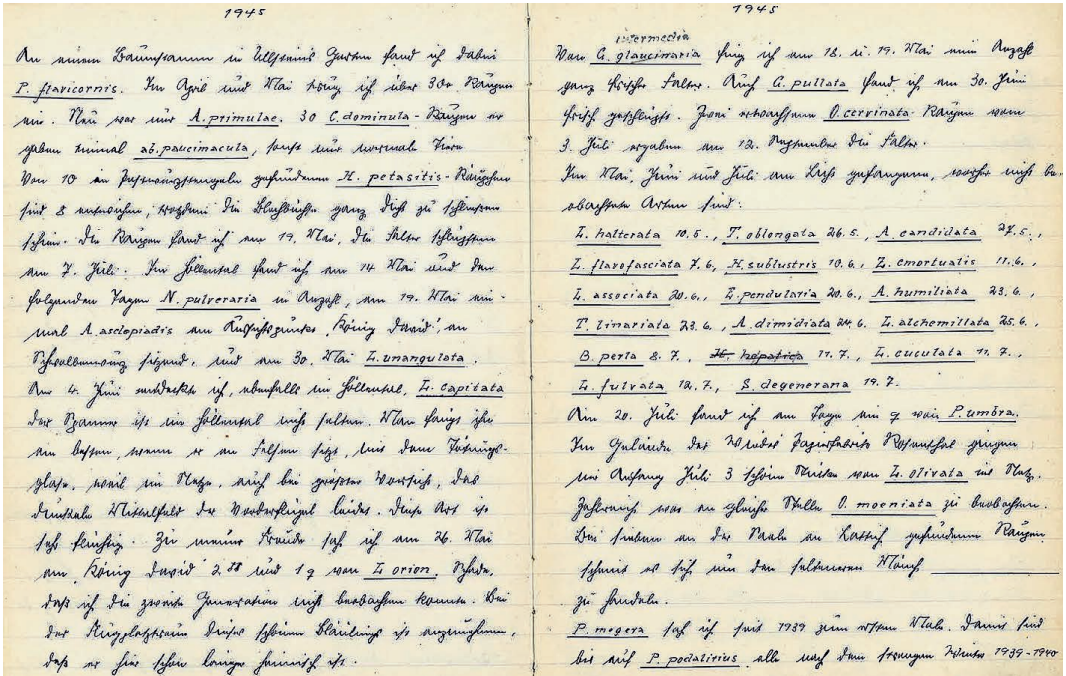 1945
An einem Baumstamm in Ullsteins Garten fand ich dabei
P. flavicornis. Im April und Mai trug ich über 300 Raupen
ein. Neu war mir A. primulae. 30 C. dominula-Raupen er
gaben einmal ab. paucimacula, sonst nur normale Tiere
Von 10 in Pestwurzstengeln gefundenen H. petasitis-Räupchen
sind 8 entwichen, trotzdem die Blechbüchse ganz dicht zu schliessen
schien. Die Raupen fand ich am 19. Mai, die Falter schlüpften
am 7. Juli. Im Höllental fand ich am 14 Mai und den
folgenden Tagen N. pulveraria in Anzahl, am 19. Mai ein-
mal A. asclepiadis am Aussichtspunkt "König David", an
Schwalbenwurz sitzend, und am 30. Mai L. unangulata.
Am 4. Juni entdeckte ich, ebenfalls im Höllental, L. capitata
der Spanner ist im Höllental nicht selten. Man fängt ihn
am besten, wenn er an Felsen sitzt, mit dem Tötungs-
glase, weil im Netze, auch bei grösster Vorsicht, das
dunkele Mittelfeld der Vorderflügel leidet. Diese Art ist
sehr flüchtig. Zu meiner Freude sah ich am 26. Mai
am "König David" 2 ♂♂ und 1 ♀ von L. orion. Schade,
daß ich die zweite Generation nicht beobachten konnte. Bei
der Flugplatztreue dieses schönen Bläulings ist anzunehmen,
daß er hier schon lange heimisch ist.
1945
intermedia
Von G. glaucinaria fing ich am 18. u. 19. Mai eine Anzahl
ganz frischer Falter. Auch G. pullata fand ich am 30. Juni
frisch geschlüpft. Zwei erwachsene O. cervinata-Raupen vom
3. Juli ergaben am 12. September die Falter.
Im Mai, Juni und Juli am Licht gefangene, vorher nicht be-
obachtete Arten sind:
L. halterata 10.5., T. oblongata 26.5., A. candidata 27.5.,
L. flavofasciata 7.6, H. sublustris 10.6., Z. emortualis 11.6.,
L. associata 20.6., E. pendularia 20.6., A. humiliata 23.6.,
T. linariata 23.6., A. dimidiata 24.6. L. alchemillata 25.6.,
B. perla 8.7., H. hepatica 11.7., L. cuculata 11.7.,
L. fulvata 12.7., S. degenerana 19.7.
Am 20. Juli fand ich am Tage ein ♀ von P. umbra.
Im Gelände der Papierfabrik Rosenthal gingen
mir Anfang Juli 3 schöne Stücke von L. olivata ins Netz.
Zahlreich war an gleicher Stelle O. moeniata zu beobachten.
Bei sieben an der Saale an Lattich gefundenen Raupen
scheint es sich um den seltenen Mönch
zu handeln.
P. megera sah ich seit 1939 zum ersten Male. Damit sind
bis auf P. podalirius alle nach dem strengen Winter 1939-1940